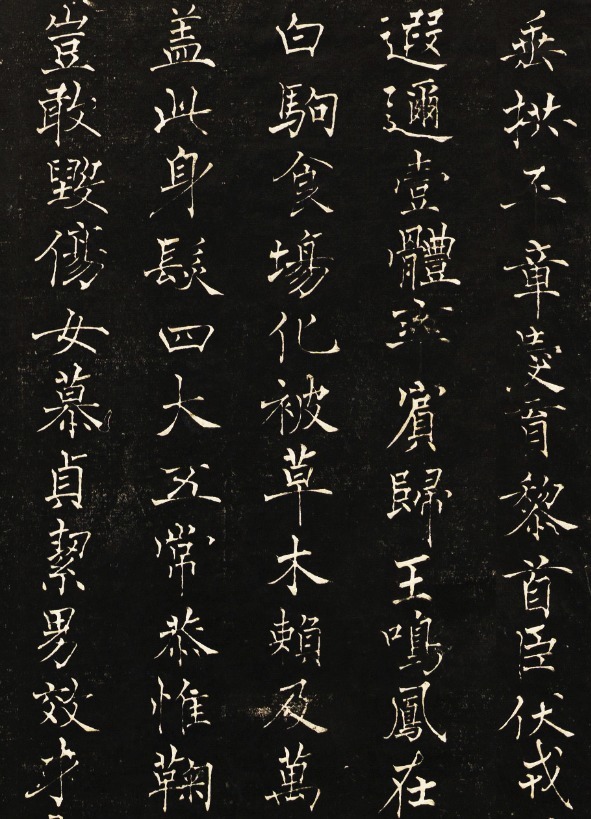 垂拱平章愛育黎首臣伏戎
遐邇壹體率賓歸王鳴鳳在
白駒食場化被草木賴及萬
盖此身髮四大五常恭惟鞠
豈敢毀傷女慕貞絜男效才